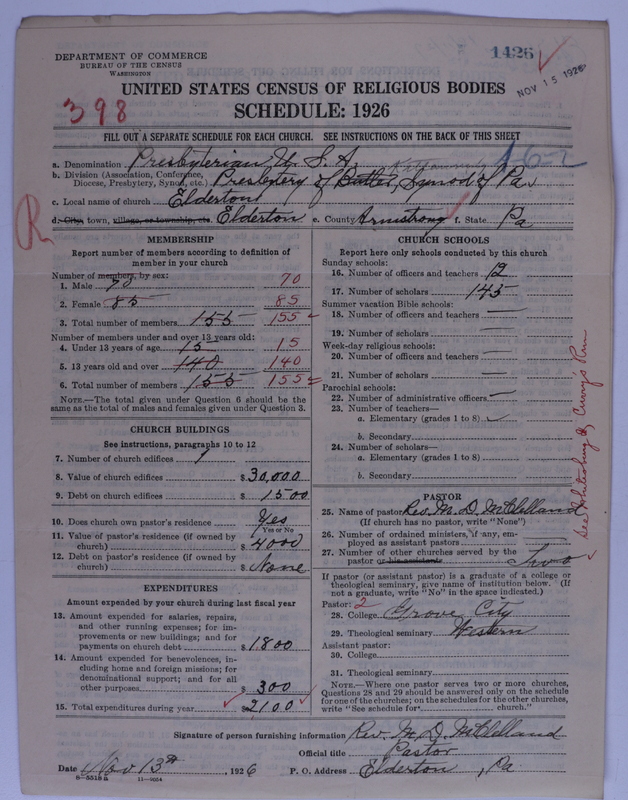 1426
NOV 15 1926
DEPARTMENT OF COMMERCE
BUREAU OF THE CENSUS
WASHINGTON
UNITED STATES CENSUS OF RELIGIOUS BODIES
398
SCHEDULE: 1926
FILL OUT A SEPARATE SCHEDULE FOR EACH CHURCH. SEE INSTRUCTIONS ON THE BACK OF THIS SHEET
a. Denomination Presbyterian U. S. A. 16-2
b. Division (Association, Conference,
Diocese, Presbytery, Synod, etc.) Presbytery of Butler, Synod of Pa.
c. Local name of church Elderton
R
d. City, town, village, or township, etc. Elderton e. County Armstrong f. State Pa
MEMBERSHIP
Report number of members according to definition of
member in your church
Number of members, by sex:
1. Male 70 70
2. Female 85 85
3. Total number of members 155 155
Number of members under and over 13 years old:
4. Under 13 years of age 15 15
5. 13 years old and over 140 140
6. Total number of members 155 155
NOTE.—The total given under Question 6 should be the
same as the total of males and females given under Question 3.
CHURCH BUILDINGS
See instructions, paragraphs 10 to 12
7. Number of church edifices 1
8. Value of church edifices $30,000
9. Debt on church edifices $1500
10. Does church own pastor's residence Yes
Yes or No
11. Value of pastor's residence (if owned by
church) $4000
12. Debt on pastor's residence (if owned by
church) $None
EXPENDITURES
Amount expended by your church during last fiscal year
13. Amount expended for salaries, repairs,
and other running expenses; for im-
provements or new buildings; and for
payments on church debt $1800
14. Amount expended for benevolences, in-
cluding home and foreign missions; for
denominational support; and for all
other purposes $300
15. Total expenditures during year $2100
CHURCH SCHOOLS
Report here only schools conducted by this church
Sunday schools:
16. Number of officers and teachers 12
17. Number of scholars 145
Summer vacation Bible schools:
18. Number of officers and teachers —
19. Number of scholars —
Week-day religious schools:
20. Number of officers and teachers —
21. Number of scholars —
Parochial schools:
22. Number of administrative officers —
23. Number of teachers—
a. Elementary (grades 1 to 8)
b. Secondary
24. Number of scholars—
a. Elementary (grades 1 to 8)
b. Secondary
PASTOR
25. Name of pastor Rev. M. D. McClelland
(If church has no pastor, write "None")
26. Number of ordained ministers, if any, em-
ployed as assistant pastors
27. Number of other churches served by the
pastor or his assistants Two
If pastor (or assistant pastor) is a graduate of a college or
theological seminary, give name of institution below. (If
not a graduate, write "No" in the space indicated.)
Pastor: 2
28. College Grove City
29. Theological seminary Western
Assistant pastor:
30. College
31. Theological seminary
NOTE.—Where one pastor serves two or more churches,
Questions 28 and 29 should be answered only on the schedule
for one of the churches; on the schedules for the other churches,
write "See schedule for church."
See Whitesburg & Curry's Run
Signature of person furnishing information Rev. M. D. McClelland
Official title Pastor
Date Nov 13th, 1926 P. O. Address Elderton, Pa.
8—5518 a 11—9054